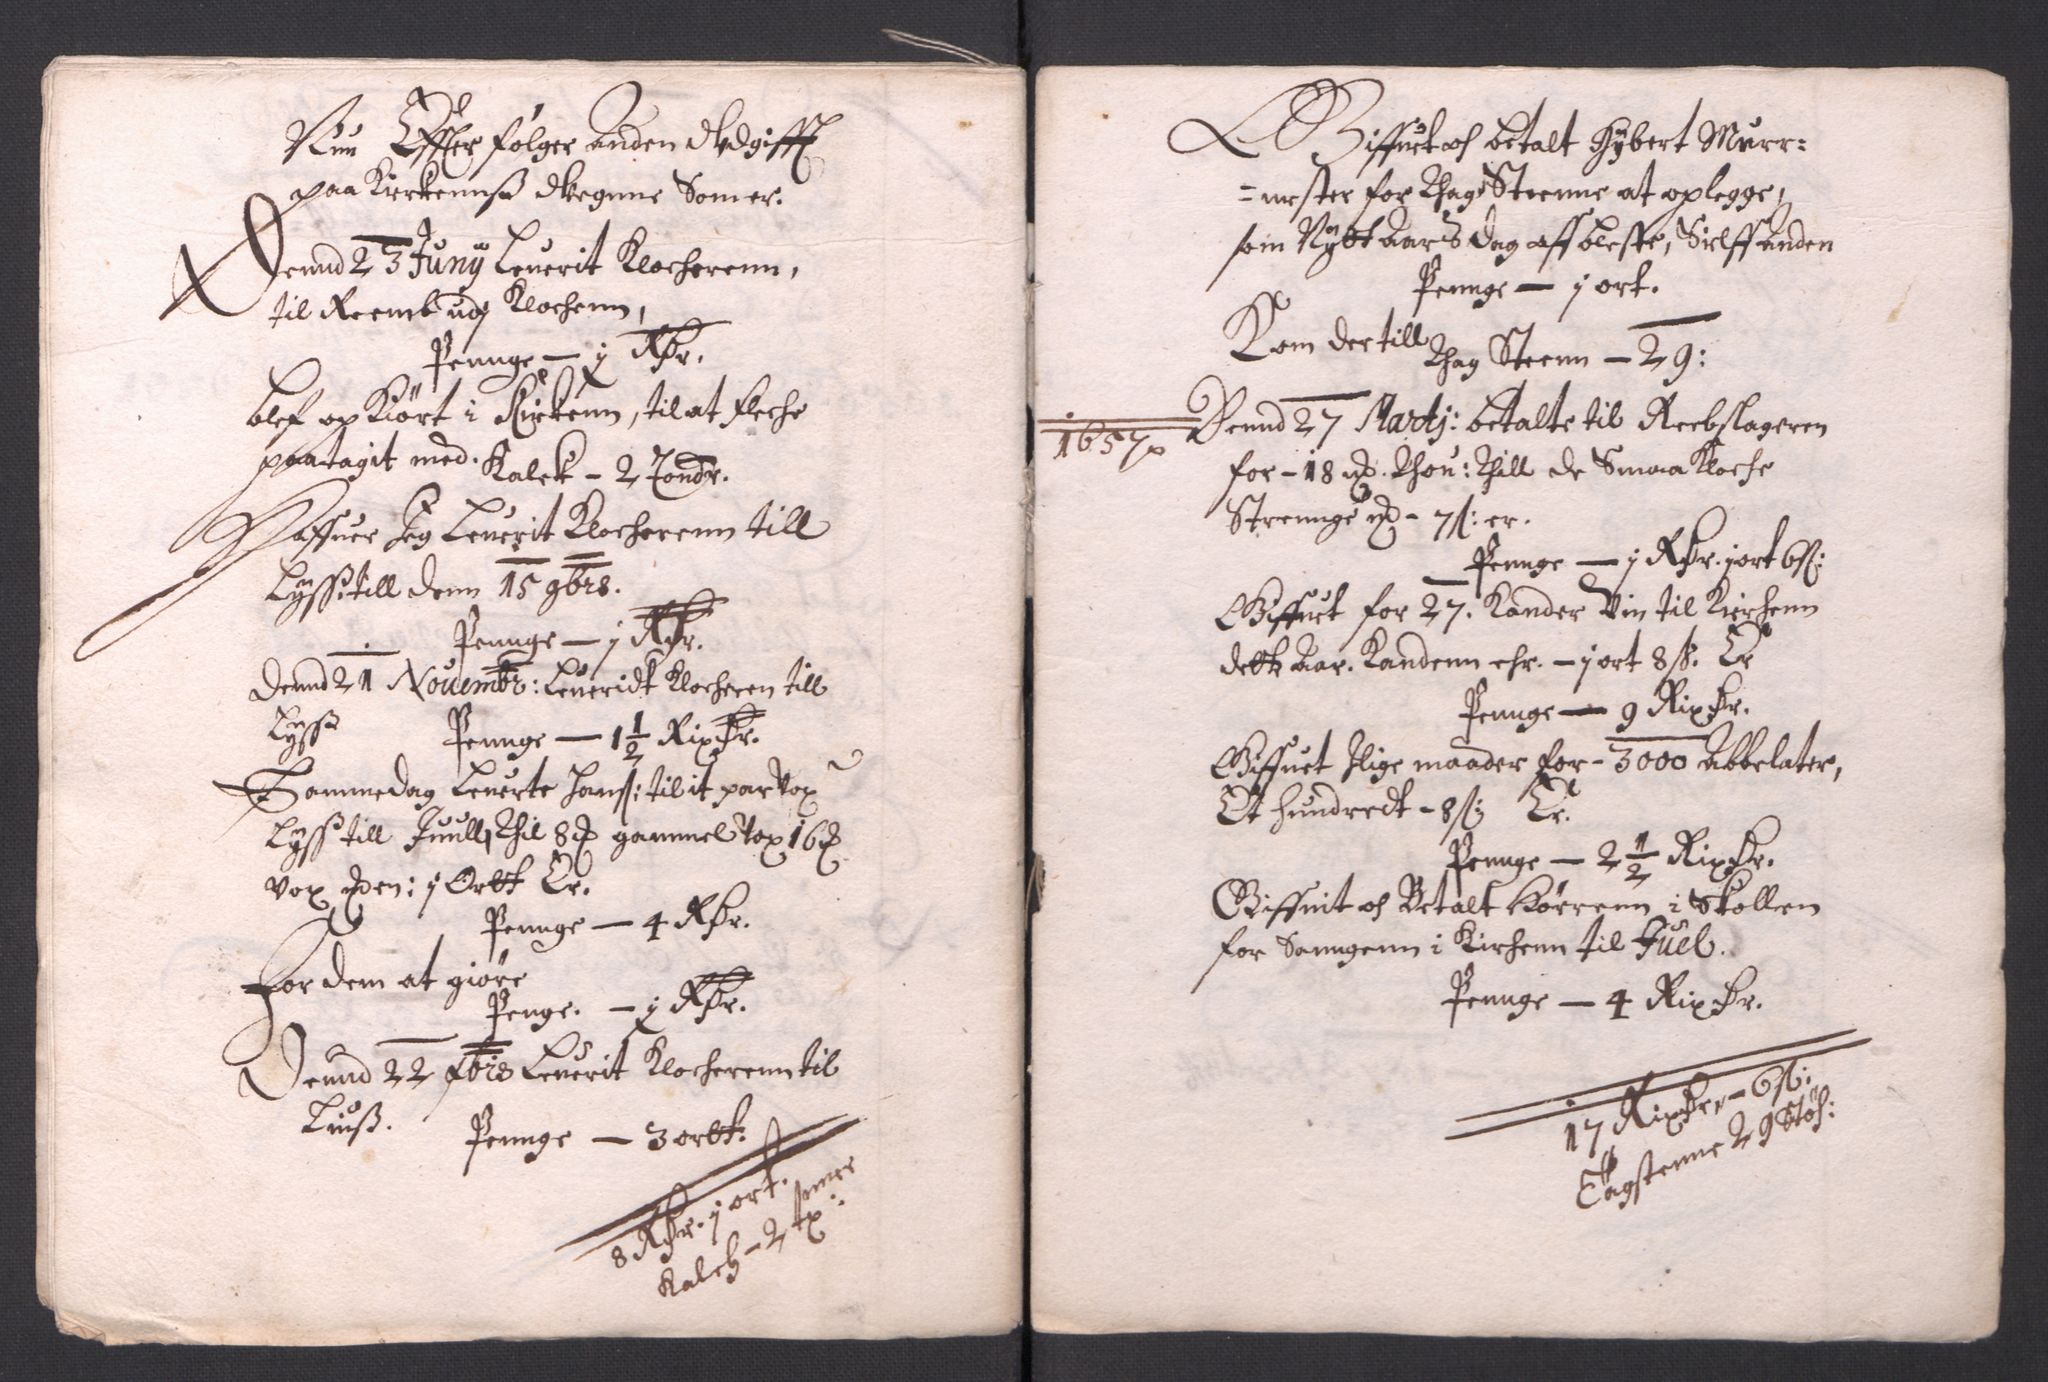 Nuu Effter følger anden Udgifft
paa Kirkennß Vegnne Som er.
Dennd 23 Junij Leuerit Klocherenn,
til Reemb udj Klochenn,
Pennge — j Rdr.
blef op Kiört i Kirkenn, til at fleche
paa tagit med. Kalck - 2 Tönndr.
Haffuer Jeg Leuerit Klocherenn till
Lyss till denn 15 9brs.
Pennge — j Rdr.
Dennd 21 Nouembr: Leueridt Klocheren till
Lyss Pennge — 1 1/2 Rixdr.
Samme dag Leuerte Hanß: til it par Vox
Lyss till Juull, Thil 8 ℔ gammel Vox 16 ℔
Vox ℔den: j Ortt Er.
Pennge — 4 Rdr.
For dem at giöre
Penge. — j Rdr.
Dennd 22 Xbris Leuerit Klocherenn til
Liuß. Pennge — 3 ortt:
8 Rdr. j ort.
Kalch - 2 tr:
Giffuet och betalt Hybert Murr=
=mester for Thag Steenne at oplegge,
som Nÿtt Aars dag aff bleste, Sielff anden
Pennge — j ort.
Kom der till
Thag Steenn — 29:
1657
Dennd 27 Martj: betalte til Reebslageren
for - 18 ℔. Thou: Thill de Smaa Kloche
Strennge ℔ - 7 ß: er.
Pennge — j Rdr. j ort 6 ß:
Giffuet for 27. Kander Vin til Kirchenn
dette Aar. Kandenn ehr. — j ort 8 ß. Er
Pennge — 9 Rixdr.
Giffuet Jlige maader for - 3000 Abbelater,
Et hundredt - 8 ß: Er.
Pennge — 2 1/2 Rixdr.
Giffuit och Betalt Hörrenn i Skollen
for Sanngenn i Kirchenn til Juel.
Pennge — 4 Rixdr.
17 Rixdr. - 6 ß:
Tagstenne 29 Støch: